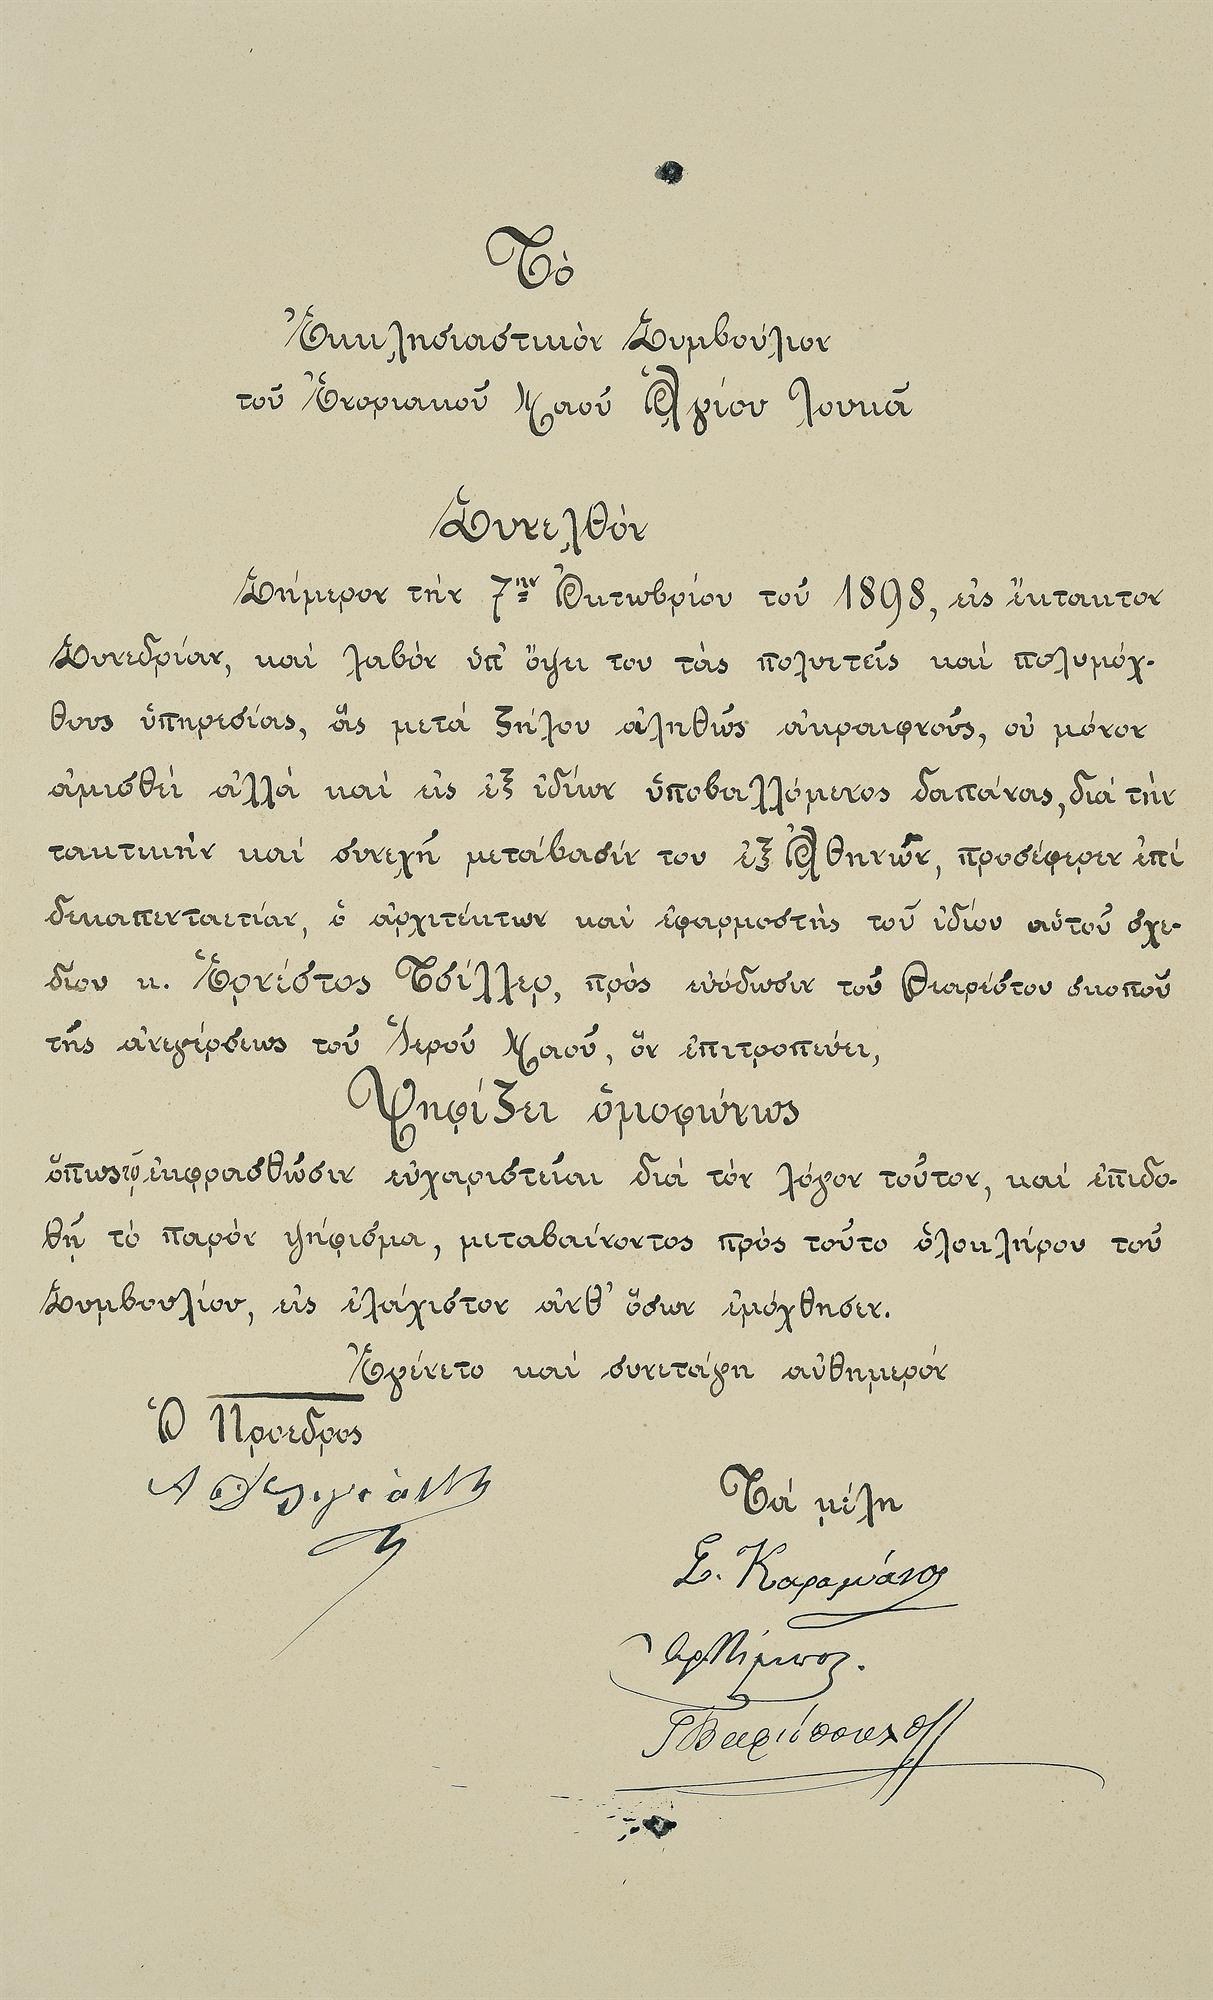 Τὸ
Ἐκκλησιαστικὸν Συμβούλιον
τοῦ Ἐνοριακοῦ Ναοῦ Ἁγίου Λουκᾶ
Συνελθὸν
Σήμερον τὴν 7ην Ὀκτωβρίου τοῦ 1898, εἰς ἔκτακτον
Συνεδρίαν, καὶ λαβὸν ὑπ' ὄψει του τὰς πολυετεῖς καὶ πολυμόχ-
θους ὑπηρεσίας, ἃς μετὰ ζήλου ἀληθῶς ἀκραιφνοῦς, οὐ μόνον
ἀμισθεὶ ἀλλὰ καὶ εἰς ἐξ ἰδίων ὑποβαλλόμενος δαπάνας, διὰ τὴν
τακτικὴν καὶ συνεχῆ μετάβασίν του ἐξ Ἀθηνῶν, προσέφερεν ἐπὶ
δεκαπενταετίαν, ὁ ἀρχιτέκτων καὶ ἐφαρμοστὴς τοῦ ἰδίου αὑτοῦ σχε-
δίου κ. Ἐρνέστος Τσίλλερ, πρὸς εὐόδωσιν τοῦ θεαρέστου σκοποῦ
τῆς ἀνεγέρσεως τοῦ Ἱεροῦ Ναοῦ, ὃν ἐπιτροπεύει,
Ψηφίζει ὁμοφώνως
ὅπως τῷ ἐκφρασθῶσιν εὐχαριστεῖαι διὰ τὸν λόγον τοῦτον, καὶ ἐπιδο-
θῇ τὸ παρὸν ψήφισμα, μεταβαίνοντος πρὸς τοῦτο ὁλοκλήρου τοῦ
Συμβουλίου, εἰς ἐλάχιστον ἀνθ' ὅσων ἐμόχθησεν.
Ἐγένετο καὶ συνετάγη αὐθημερόν
Ὁ Πρόεδρος
Τὰ μέλη
Σ. Καραμάνος